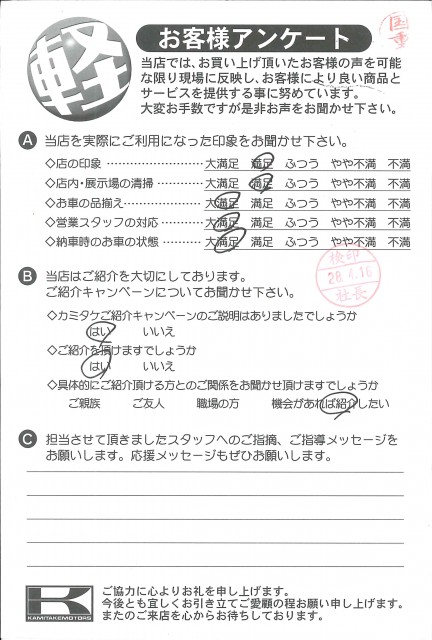 軽
お客様アンケート
当店では、お買い上げ頂いたお客様の声を可能
な限り現場に反映し、お客様により良い商品と
サービスを提供する事に努めています。
大変お手数ですが是非お声をお聞かせ下さい。
A 当店を実際にご利用になった印象をお聞かせ下さい。
◇店の印象 ………………… 大満足 満足 ふつう やや不満 不満
◇店内・展示場の清掃 ………… 大満足 満足 ふつう やや不満 不満
◇お車の品揃え ……………… 大満足 満足 ふつう やや不満 不満
◇営業スタッフの対応 ………… 大満足 満足 ふつう やや不満 不満
◇納車時のお車の状態 ………… 大満足 満足 ふつう やや不満 不満
検印
28.4.16
社長
B 当店はご紹介を大切にしてあります。
ご紹介キャンペーンについてお聞かせ下さい。
◇カミタケご紹介キャンペーンのご説明はありましたでしょうか
はい いいえ
◇ご紹介を頂けますでしょうか
はい いいえ
◇具体的にご紹介頂ける方とのご関係をお聞かせ頂けますでしょうか
ご親族 ご友人 職場の方 機会があれば紹介したい
C 担当させて頂きましたスタッフへのご指摘、ご指導メッセージを
お願いします。応援メッセージもぜひお願いします。
K
KAMITAKEMOTORS
ご協力に心よりお礼を申し上げます。
今後とも宜しくお引き立てご愛顧の程お願い申し上げます。
またのご来店を心からお待ちしております。